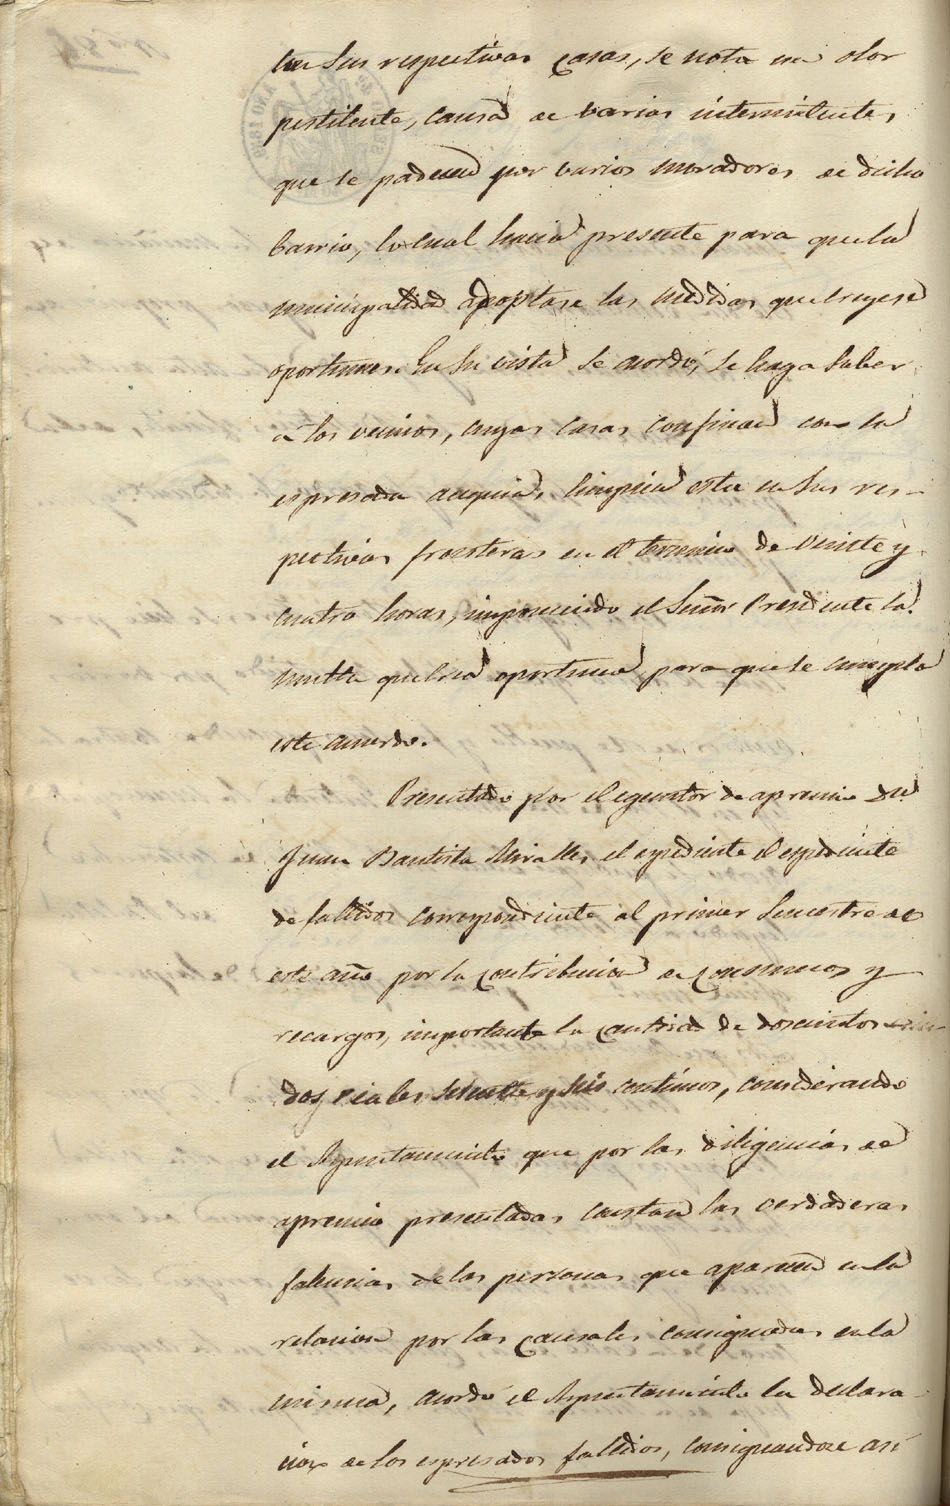 en sus respectivas casas, se nota un olor
pestilente, causa de varias intermitentes,
que se padecen por varios moradores de dicho
barrio, lo cual hacia presente para que la
municipalidad adoptase las medidas que creyese
oportunas. En su vista se acordó, se haga saber
a los vecinos, cuyas casas confinan con la
espresada acequia, limpien esta en sus res-
pectivas fronteras en el termino de veinte y
cuatro horas, imponiendo el Señor Presidente la
multa que crea oportuna para que se cumpla
este acuerdo.
Presentado por el egecutor de apremio Dn
Juan Bautista Miralles el espediente el espediente
de fallidos correspondiente al primer semestre de
este año por la contribucion de consumos y
recargos, importante la cantidad de doscientos
dos reales setenta y seis centimos, considerando
el Ayuntamiento que por las diligencias de
apremio presentadas constan las verdaderas
falencias de las personas que aparecen en la
relacion por las causales consignadas en la
misma, acordó el Ayuntamiento la declara-
cion de los espresados fallidos, consignandose asi